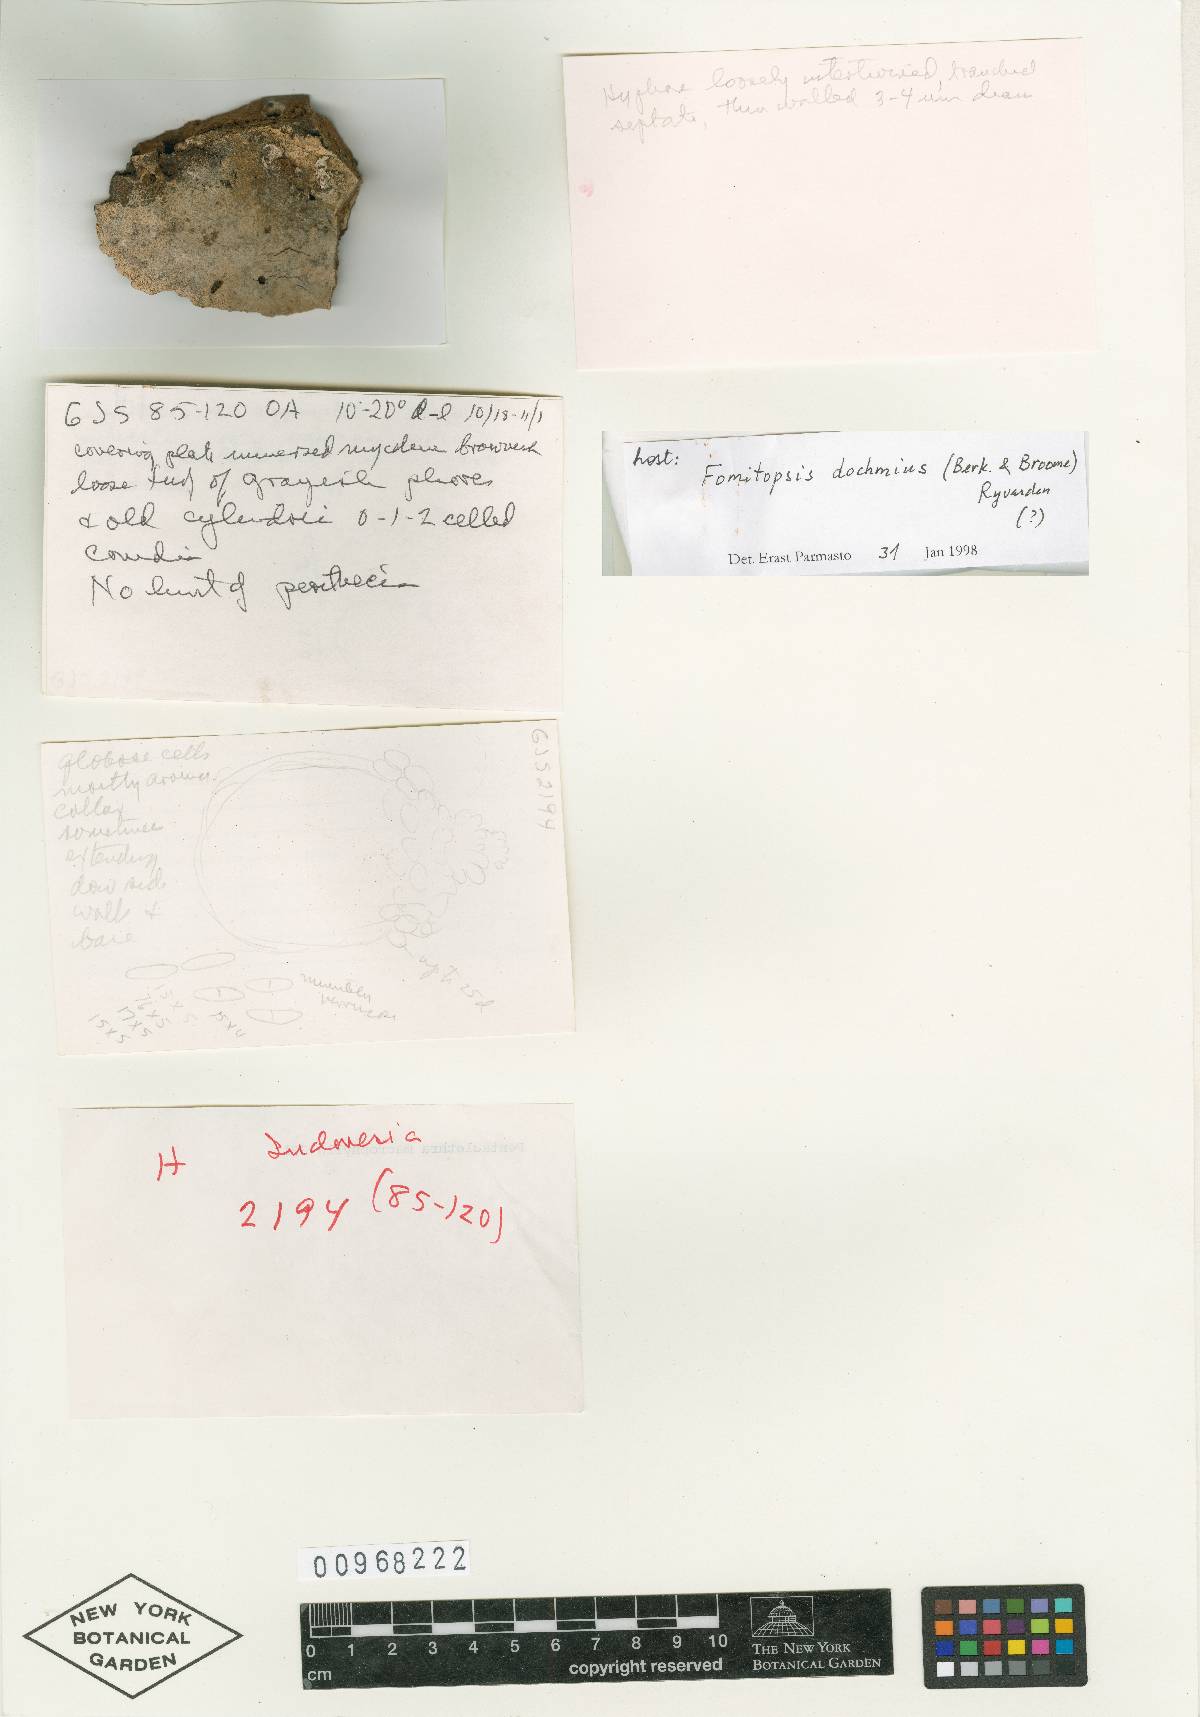 Hyphae loosely intertwined, branched
septate, thin walled 3-4 um diam
GJS 85-120 OA 10°-20° d-l 10/18-11/1
covering plate immersed mycelium brownish
loose tuft of grayish phores
& old cylindric 0-1-2 celled
conidia
No hint of perithecia
host: Fomitopsis dochmius (Berk. & Broome)
Ryvarden
(?)
Det. Erast Parmasto 31 Jan 1998
globose cells
mostly around
collar
sometimes
extending
down side
walls &
base
GJS 2194
up to 25 d
15 x 5
17 x 5
16 x 5
15 x 5
Indonesia
H
2194 (85-120)
00968222
NEW YORK
BOTANICAL
GARDEN
0 1 2 3 4 5 6 7 8 9 10
cm
copyright reserved
THE NEW YORK
BOTANICAL GARDEN